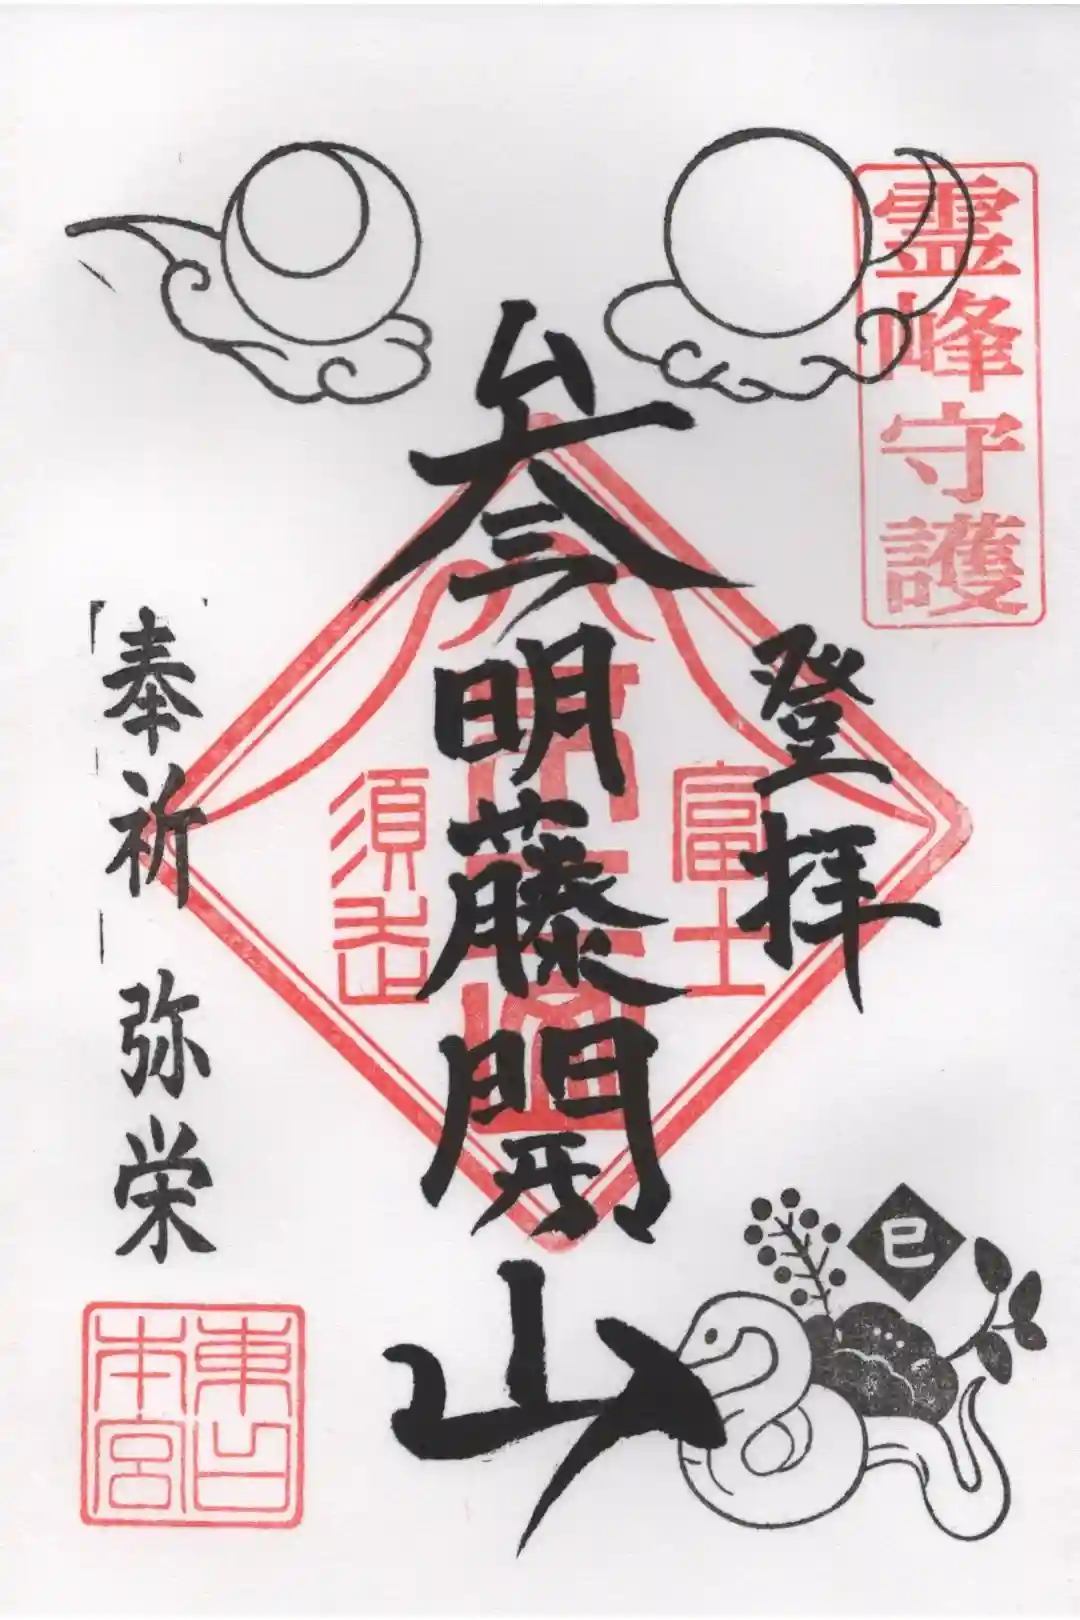 霊峰守護
登拝
富士
叁明藤開山
須走
奉祈 弥栄
東口
本宮
巳